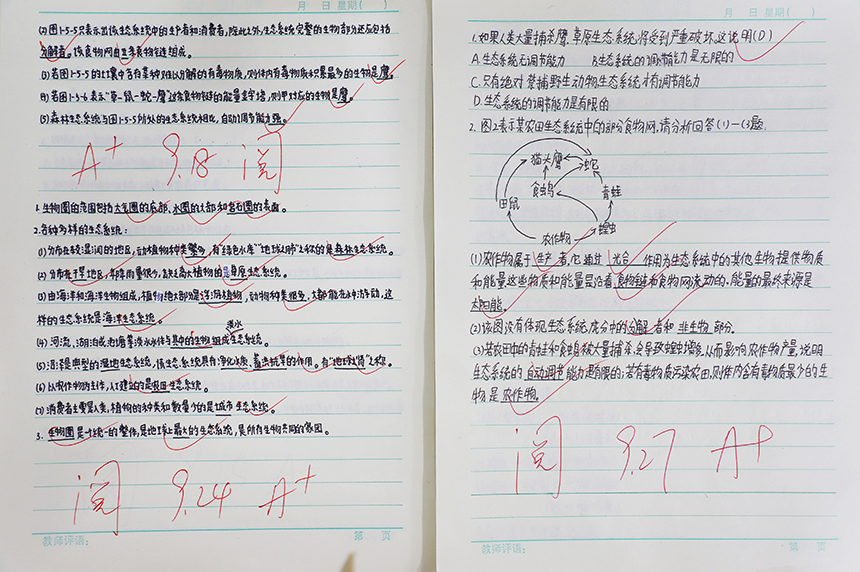 (2)图1-5-5只表示出该生态系统中的生产者和消费者,除此之外,生态系统完整的生物部分还应包括
分解者。该食物网由三条食物链组成。
(3)若图1-5-5的红囊中含有某种难以分解的有毒物质,则体内有毒物质积累最多的生物是鹰。
(4)若图1-5-6表示"草-鼠-蛇-鹰"这条食物链的能量金字塔,则甲对应的生物是鹰。
(5)森林生态系统与图1-5-5所处的生态系统相比,自动调节能力强。
A+ 9.18 阅
1.生物圈的范围包括大气圈的底部,水圈的大部和岩石圈的表面。
2.各种多样的生态系统:
(1)分布在较湿润的地区,动植物种类繁多,有"绿色水库""地球之肺"之称的是森林生态系统。
(2)分布在干旱地区,年降雨量很少,缺乏高大植物的是草原生态系统。
(3)由海洋和海洋生物组成,植物绝大部分是浮游植物,动物种类很多,大都能在水中游动,这
样的生态系统是海洋生态系统。
(4)河流、湖泊或池塘等淡水水体与其中的生物组成淡水生态系统。
(5)沼泽是典型的湿地生态系统,该生态系统具有净化水质、蓄洪抗旱的作用。有"地球之肾"之称。
(6)以农作物为主体,人工建立的是农田生态系统。
(7)消费者主要是人类,植物的种类和数量少的是城市生态系统。
3.生物圈是个统一的整体,是地球上最大的生态系统,是所有生物共同的家园。
阅 9.24 A+
教师评语:
第 页
月 日 星期( )
1.如果人类大量捕杀鹰,草原生态系统将受到严重破坏,这说明(D)
A.生态系统无调节能力 B.生态系统的调节能力是无限的
C.只有绝对禁捕野生动物,生态系统才有调节能力
D.生态系统的调节能力是有限的
2.图2表示某农田生态系统中的部分食物网,请分析回答(1)-(3)题
猫头鹰 蛇
田鼠 食虫鸟 青蛙
农作物 蝗虫
(1)农作物属于生产者,它通过光合作用为生态系统中的其他生物提供物质
和能量这些物质和能量是沿着食物链和食物网流动的。能量的最终来源是
太阳能。
(2)该图没有体现生态系统成分中的分解者和非生物部分。
(3)某农田中的青蛙和食虫鸟被大量捕杀,会导致蝗虫增多,从而影响农作物产量,说明
生态系统的自动调节能力是有限的;若有毒物质污染农田,则体内含有毒物质最少的生
物是农作物。
阅 9.27 A+
教师评语:
第 页
月 日 星期( )